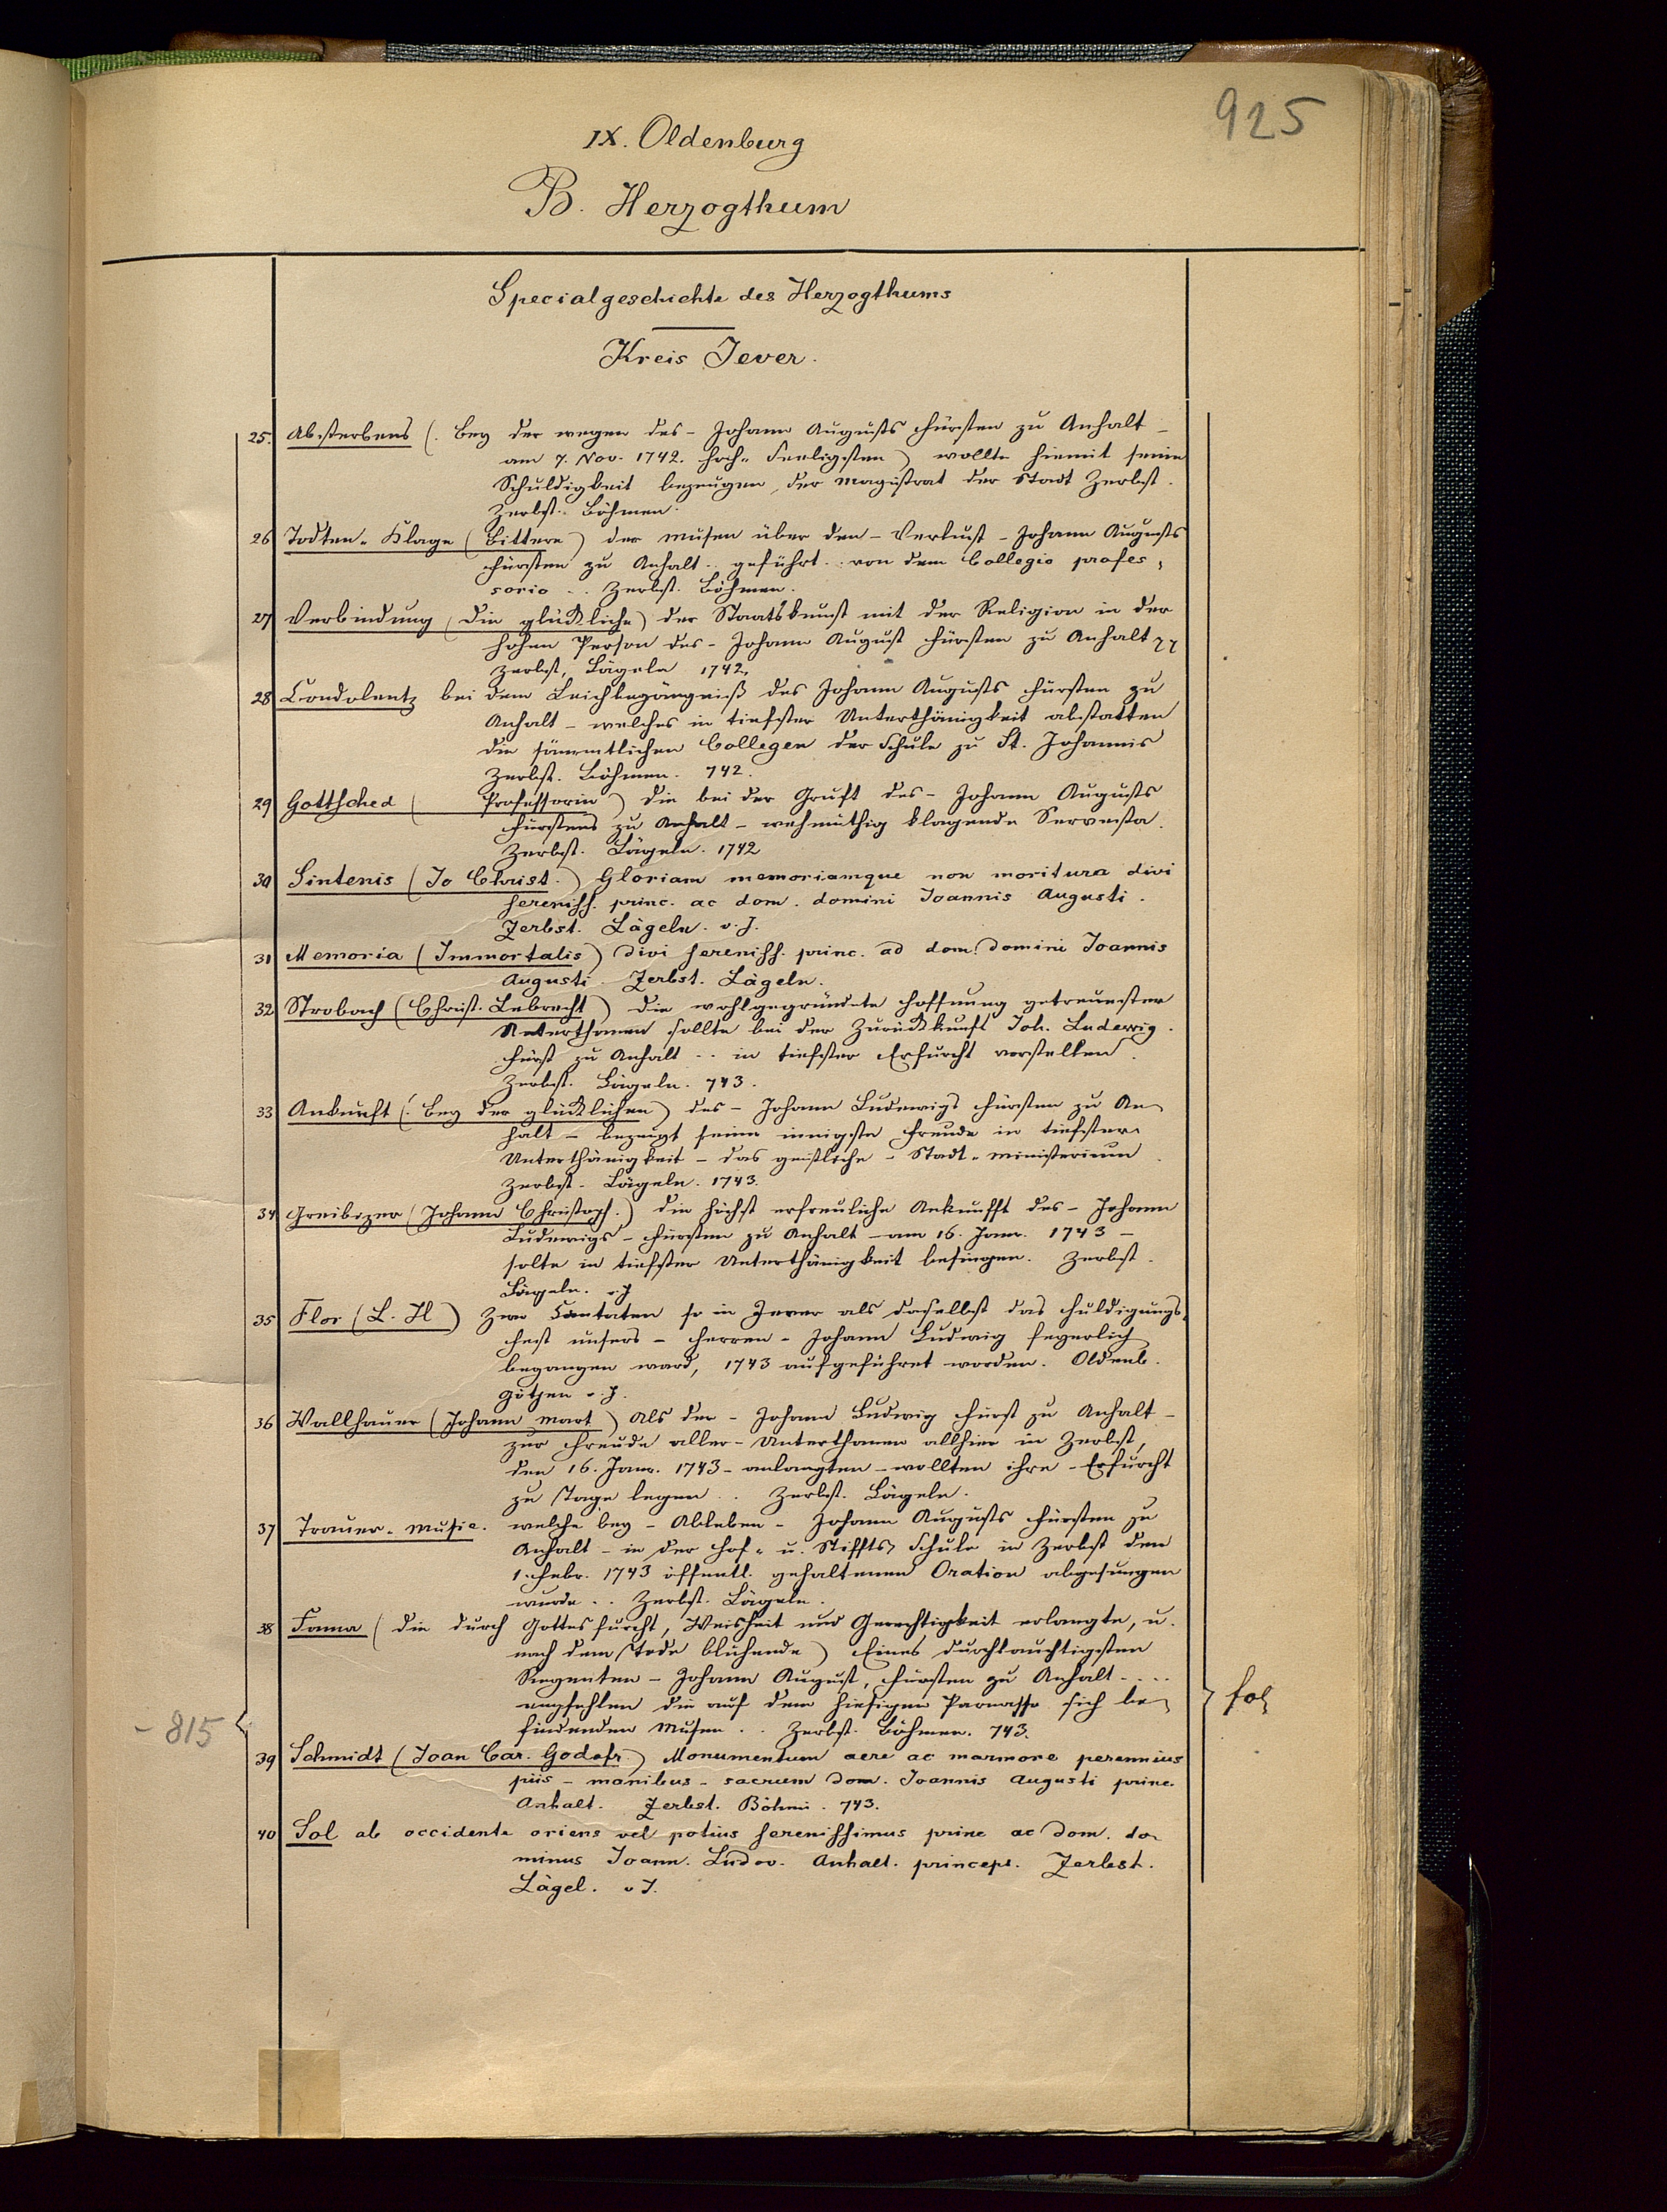 925
IX. Oldenburg
B. Herzogthum
Specialgeschichte des Herzogthums
Kreis Jever.
25. Absterbens (. bey der wegen des - Johann Augusts Fürsten zu Anhalt -
am 7. Nov. 1742. hoch-Seeligsten) wollte hiemit seine
Schuldigkeit bezeugen, der Magistrat der Stadt Zerbst.
Zerbst. Böhmen.
26 Todten-Klage (bittere) der Musen über den - Verlust - Johann Augusts
Fürsten zu Anhalt .. geführt .. von dem Collegio profes-
sorio .. Zerbst. Böhmen.
27 Verbindung (die glückliche) der Staatskunst mit der Religion in der
hohen Person des - Johann August Fürsten zu Anhalt
Zerbst, Lägeln 1742,
28 Condolentz bei dem Leichbegängniß des Johann Augusts Fürsten zu
Anhalt - welches in tiefster Unterthänigkeit abstatten
die sämmtlichen Collegen der Schule zu St. Johannis
Zerbst. Böhmen. 742.
29 Gottsched ( Professorin) die bei der Gruft des - Johann Augusts
Fürstens zu Anhalt - wehmüthig klagende Servesta.
Zerbst. Lägeln. 1742
30 Sintenis (Jo Christ.) Gloriam memoriamque non moritura divi
sereniss. princ. ac dom. domini Joannis Augusti.
Zerbst. Lägeln. o. J.
31 Memoria (Immortalis) divi sereniss. princ. ad dom. domini Joannis
Augusti Zerbst. Lägeln.
32 Strobach (Christ. Lebrecht) die wohlgegründete Hoffnung getreuester
Unterthanen sollte bei der Zurückkunft Joh. Ludewig.
Fürst zu Anhalt .. in tiefster Erfurcht vorstellen.
Zerbst. Lägeln. 743.
33 Ankunft (. bey der glücklichen) des - Johann Ludewigs Fürsten zu An-
halt - bezeugt seine innigste Freude in tiefster
Unterthänigkeit - das geistliche - Stadt-Ministerium
Zerbst. Lägeln. 1743.
34 (Johann Christoph.) die höchst erfreuliche Ankunfft des - Johann
Ludewigs - Fürsten zu Anhalt - am 16. Janr. 1743 -
solte in tiefster Unterthänigkeit besingen. Zerbst.
Lägeln. o. J
35 Flor (L. H) Zwo Cantaten so in Jever als daselbst das Huldigungs-
Fest unsers - Herren - Johann Ludwig feyerlich
begangen ward, 1743 aufgeführet worden. Oldenb.
Götjen o. J.
36 Wallhauer (Johann Mart) Als der - Johann Ludwig Fürst zu Anhalt -
zur Freude aller - Unterthanen allhier in Zerbst,
den 16. Janr. 1743 - anlangten - wollten ihre - Erfurcht
zu Tage legen .. Zerbst. Lägeln.
37 Trauer-Music. welche bey - Ableben - Johann Augusts Fürsten zu
Anhalt - in der Hof- u. Stiffts Schule in Zerbst den
1. Febr. 1743 öffentl. gehaltenen Oration abgesungen
wurde .. Zerbst. Lägeln.
38 Fama (die durch Gottesfurcht, Weisheit und Gerechtigkeit erlangte, u.
nach dem Tode blühende) Eines durchlauchtigsten
Regenten - Johann August, Fürsten zu Anhalt ....
empfehlen die auf dem hiesigen Parnasso sich be-
findenden Musen .. Zerbst. Böhmen. 743.
fol
- 815
39 Schmidt (Joan Car. Godofr) Monumentum aere ac marmore perennius
piis - manibus - sacrum dom. Joannis Augusti princ.
Anhalt. Zerbst. Böhmi. 743.
40 Sol ab occidente oriens vel potius serenissimus princ ac dom. do-
minus Joann. Ludov. Anhalt. princeps. Zerbst.
Lägel. o J.